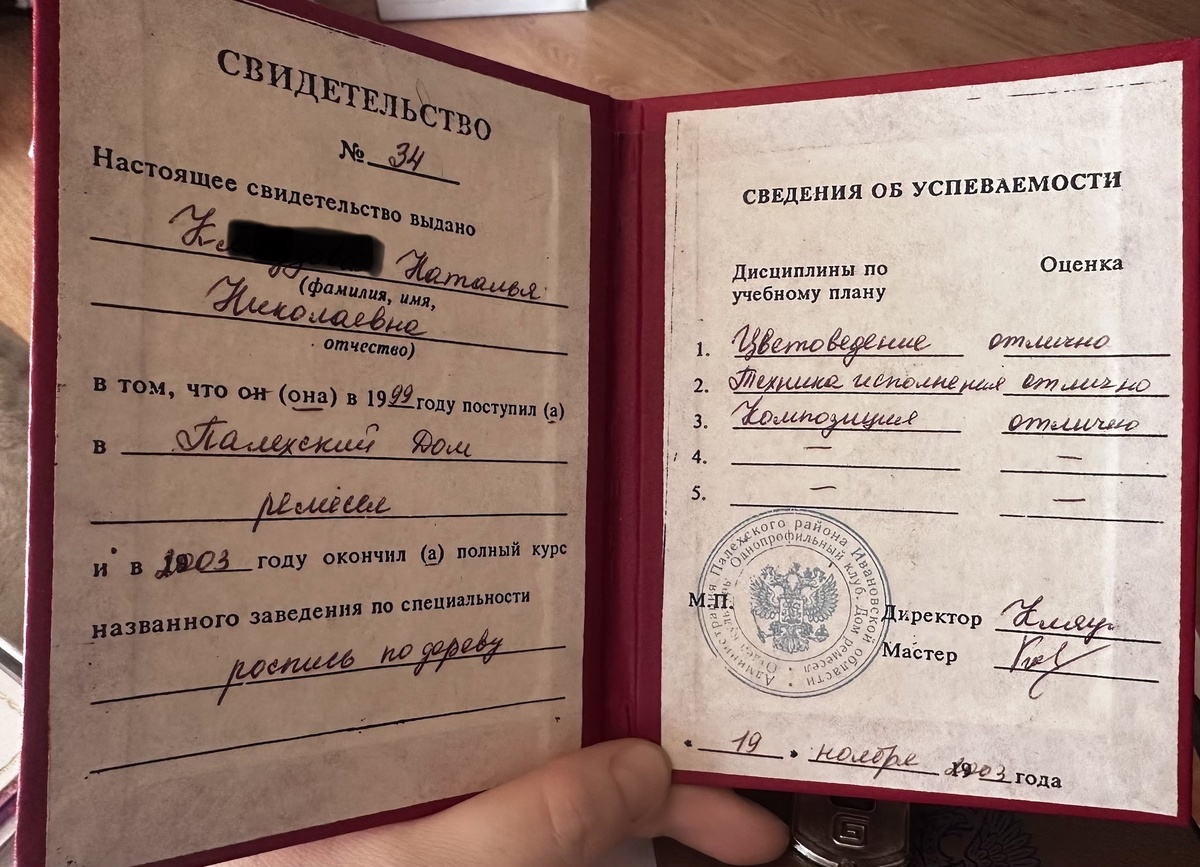 СВИДЕТЕЛЬСТВО
№ 34
Настоящее свидетельство выдано
Наталья
(фамилия, имя,
Николаевна
отчество)
в том, что он (она) в 1999 году поступил (а)
в Палехский Дом
ремесел
и в 2003 году окончил (а) полный курс
названного заведения по специальности
роспись по дереву
СВЕДЕНИЯ ОБ УСПЕВАЕМОСТИ
Дисциплины по учебному плану
Оценка
1. Цветоведение отлично
2. Техника исполнения отлично
3. Композиция отлично
4. — —
5. — —
Администрация Палехского района Ивановской области
Отдел культуры Однопрофильный клуб. Дом ремесел
М.П.
Директор
Мастер
" 19 " ноября 2003 года